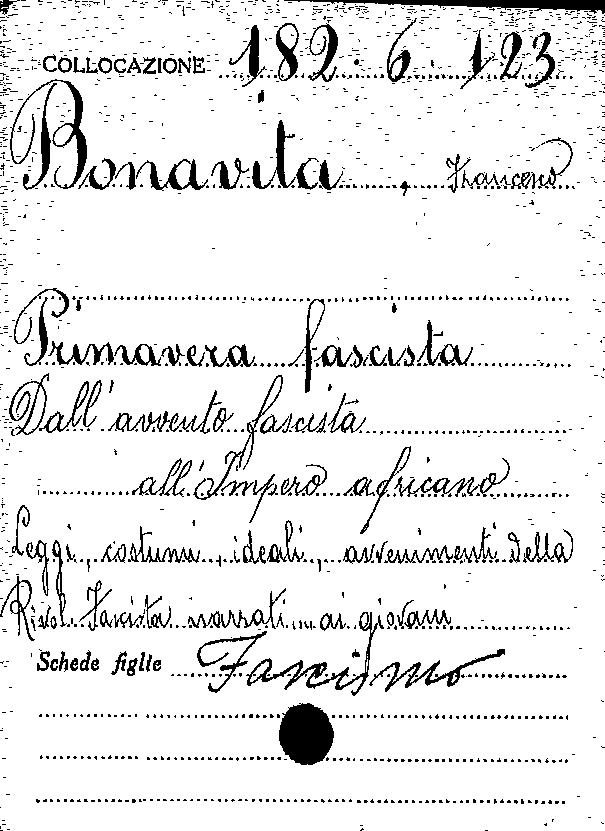 COLLOCAZIONE 182.6.123
Bonavita, Francesco
Primavera fascista
Dall'avvento fascista
all'Impero africano
Leggi, costumi, ideali, avvenimenti della
Rivol. Fascista narrati ai giovani
Schede figlie Fascismo